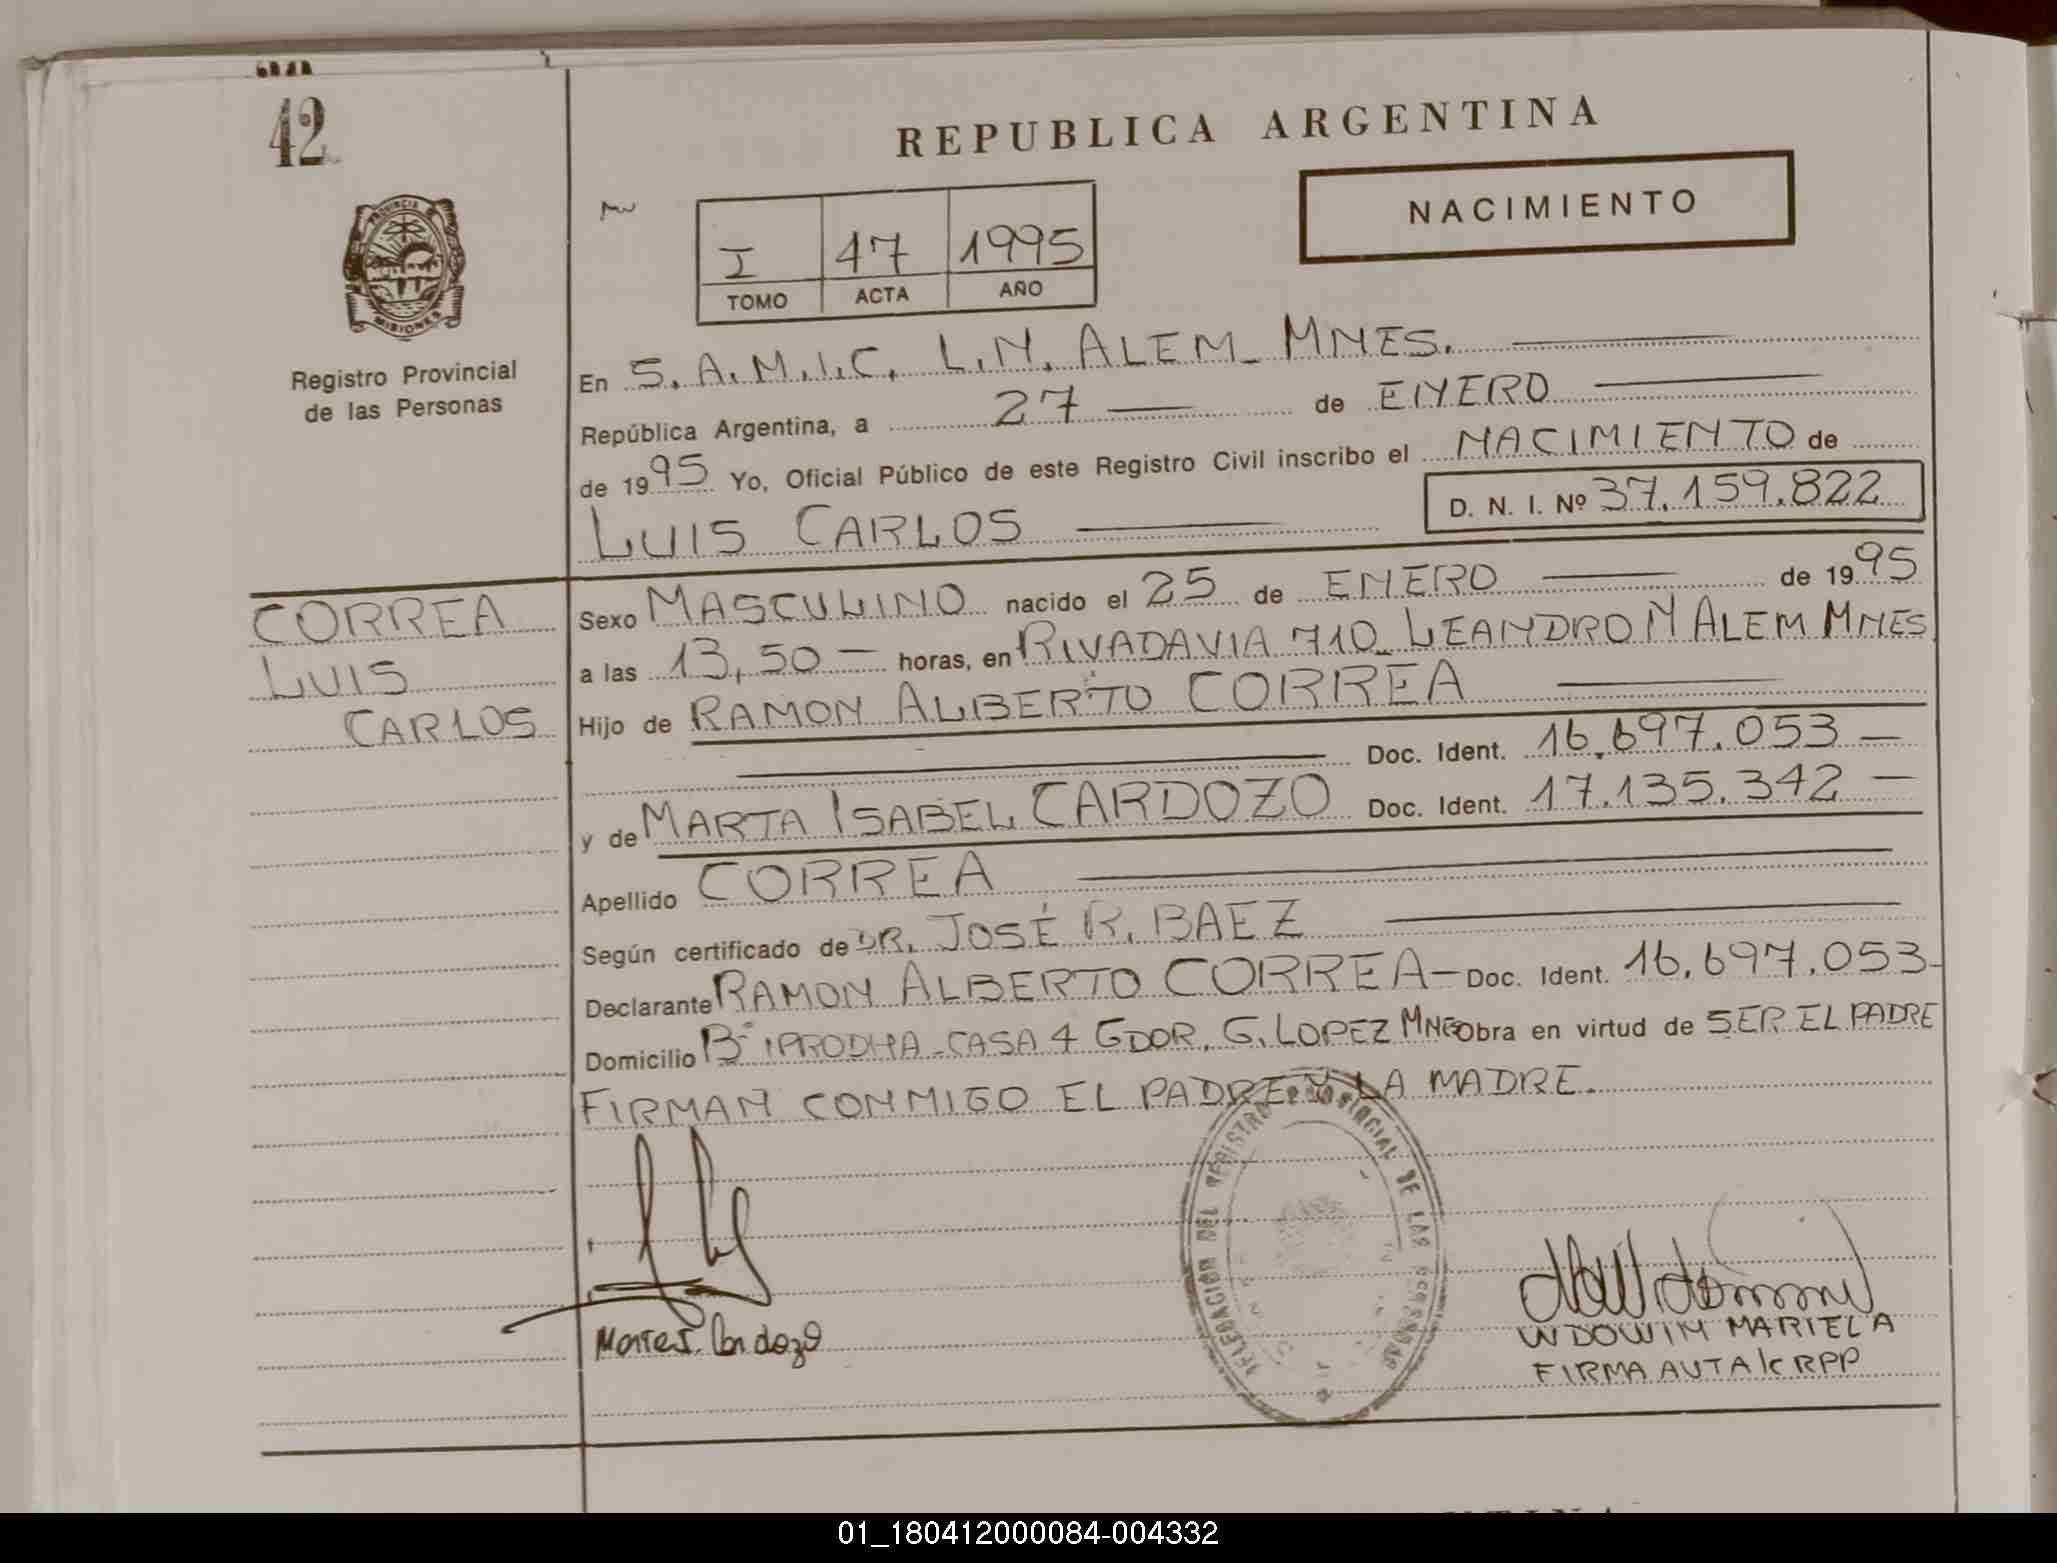 42
REPUBLICA ARGENTINA
NACIMIENTO
I 47 1995
TOMO ACTA AÑO
PROVINCIA DE
MISIONES
Registro Provincial
de las Personas
En S.A.M.I.C. L.N. ALEM_ MNES.
República Argentina, a 27 de ENERO
de 1995 Yo, Oficial Público de este Registro Civil inscribo el NACIMIENTO de
D. N. I. Nº 37.159.822
LUIS CARLOS
CORREA
LUIS
CARLOS
Sexo MASCULINO nacido el 25 de ENERO de 1995
a las 13,50 — horas, en RIVADAVIA 710_ LEANDRO N ALEM MNES
Hijo de RAMON ALBERTO CORREA
Doc. Ident. 16.697.053 —
y de MARTA ISABEL CARDOZO Doc. Ident. 17.135.342 —
Apellido CORREA
Según certificado de DR. JOSÉ R. BAEZ
Declarante RAMON ALBERTO CORREA — Doc. Ident. 16.697.053-
Domicilio Bº IPRODHA_CASA 4 GDOR. G. LOPEZ MNES Obra en virtud de SER EL PADRE
FIRMAN CONMIGO EL PADRE Y LA MADRE.
DELEGACIÓN DEL REGISTRO PROVINCIAL DE LAS PERSONAS
WDOWIN MARIELA
FIRMA AUTA
01_180412000084-004332